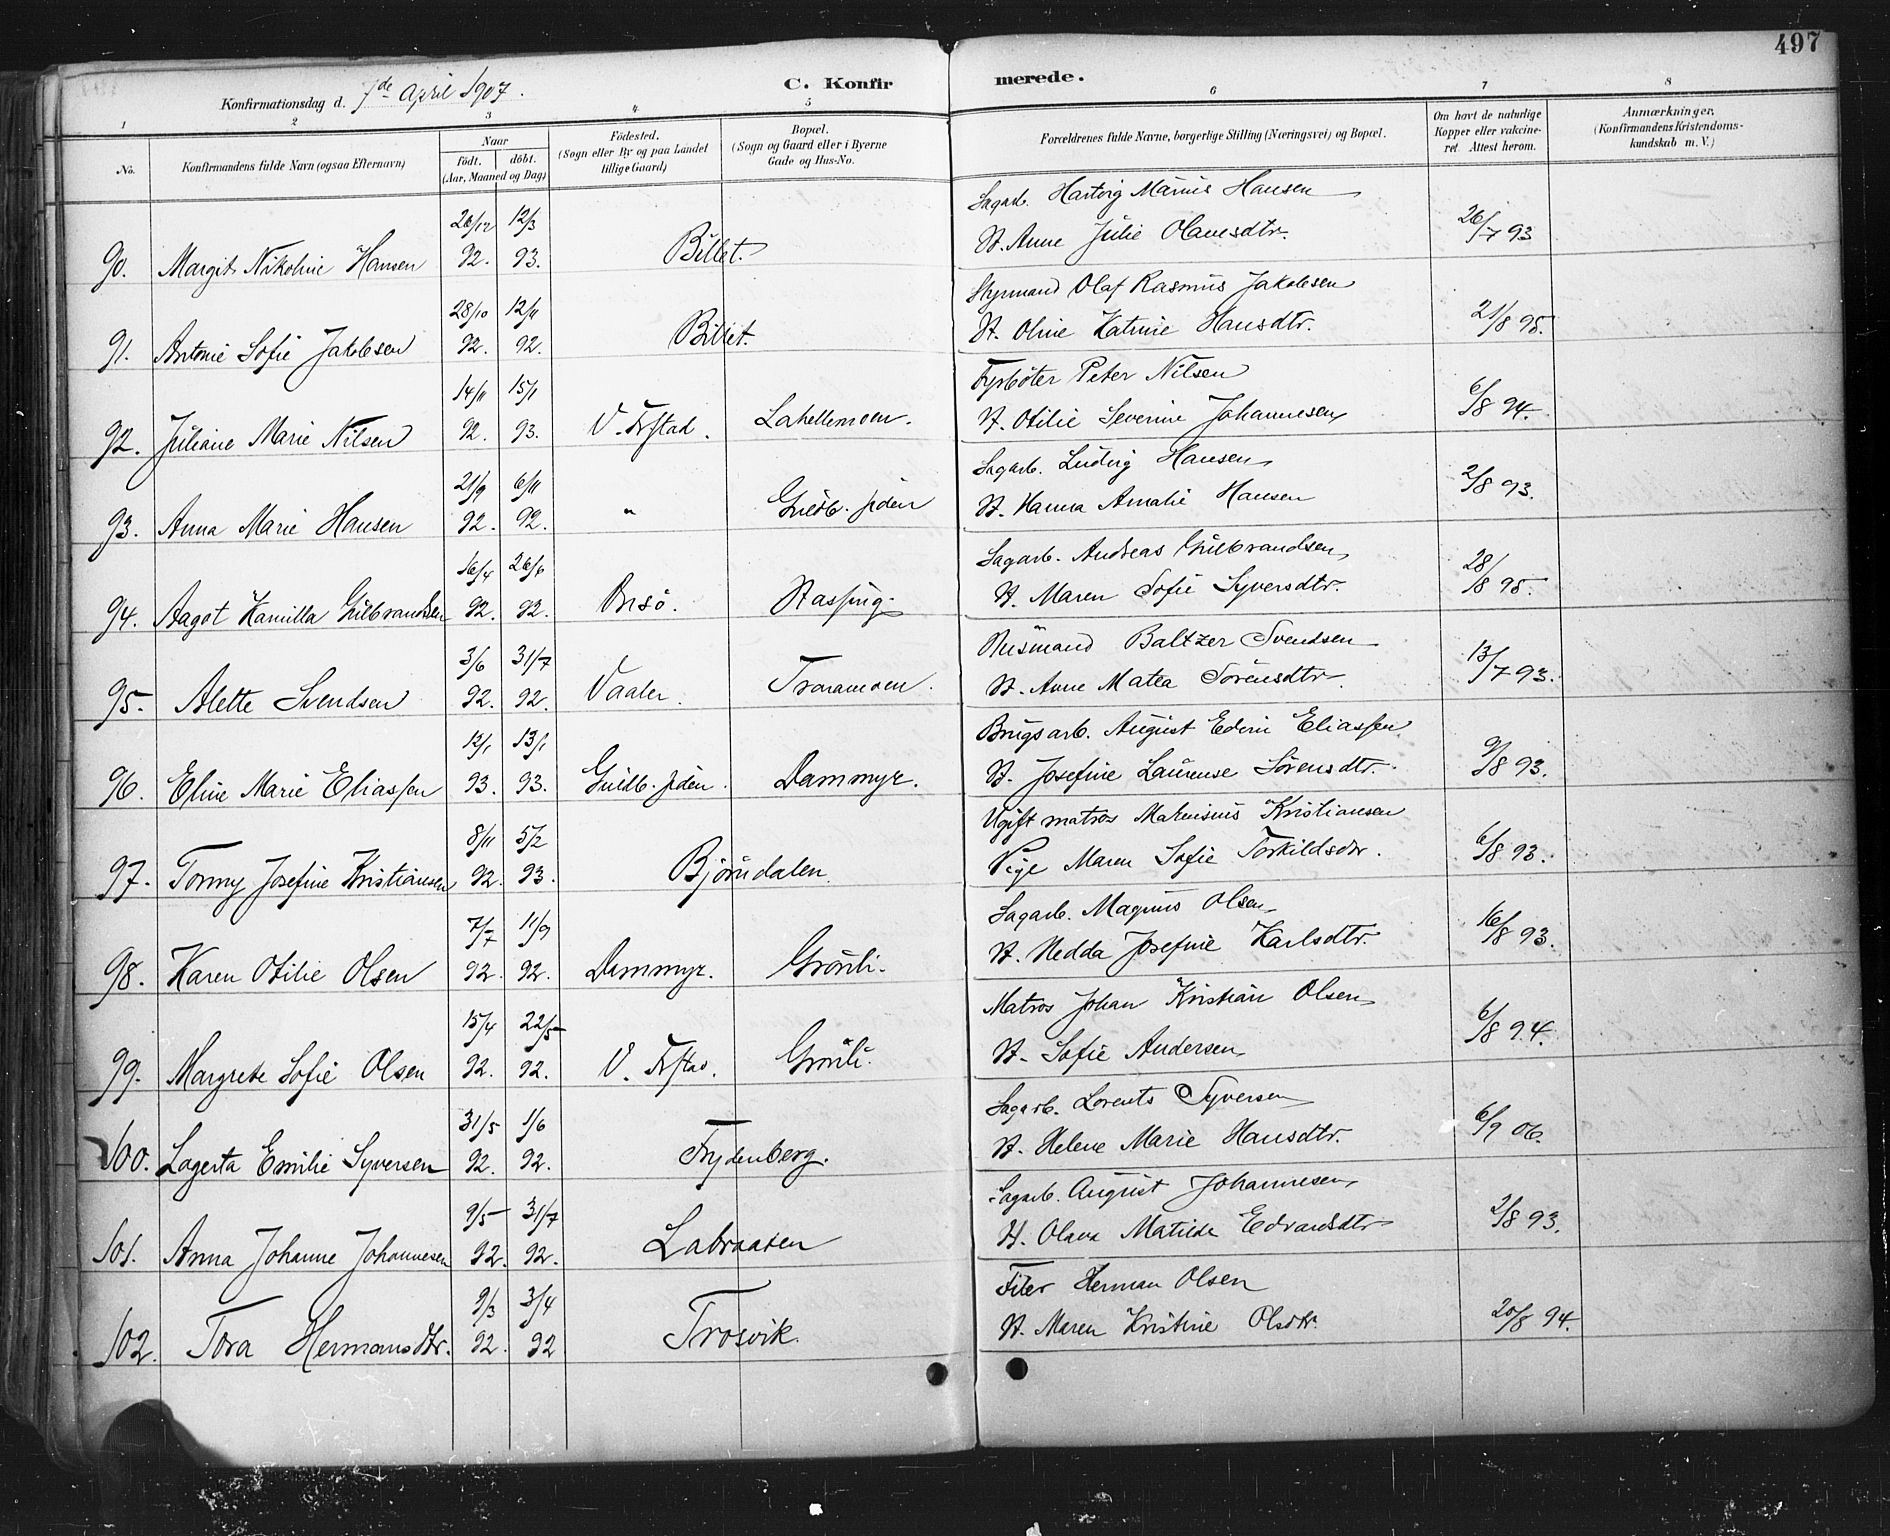 497
C. Konfirmerede.
Konfirmationsdag d. 7de April 1907.
1 2 3 4 5 6 7 8
No.
Konfirmandens fulde Navn (ogsaa Efternavn)
Naar
født. døbt.
(Aar, Maaned og Dag)
Födested.
(Sogn eller By og paa Landet
tillige Gaard)
Bopæl.
(Sogn og Gaard eller i Byerne
Gade og Hus-No.
Forældrenes fulde Navne, borgerlige Stilling (Næringsvei) og Bopæl.
Om havt de naturlige
Kopper eller vakcine-
ret. Attest herom.
Anmærkninger.
(Konfirmandens Kristendoms-
kundskab m. V.)
26/12 12/3 Sagarb. Hartvig Marius Hansen
90. Margit Nikoline Hansen 92. 93. Billet. H. Anne Julie Olavesdtr. 26/7 93
28/10 12/11 Styrmand Olaf Rasmus Jakobsen
91. Antonie Sofie Jakobsen 92. 92. Billet. H. Oline Katrine Hansdtr. 21/8 95.
14/11 15/1 Fyrböter Peter Nilsen
92. Juliane Marie Nilsen 92. 93. V. Frstad. Lahellemoen. H. Otilie Severine Johannesen 6/8 94.
21/9 6/11 Sagarb. Ludvig Hansen
93. Anna Marie Hansen 92. 92. " Guldb. siden H. Hanna Amalie Hansen 2/8 93.
16/4 26/6 Sagarb. Andreas Gulbrandsen
94. Aagot Kamilla Gulbrandsen 92. 92. Onsö. H. Maren Sofie Syversdtr. 28/8 95.
3/6 31/7 Husmand Baltzer Svendsen
95. Alette Svendsen 92. 92. Vaaler. Traramoen. H. Anne Matea Sörensdtr. 13/7 93.
12/1 13/1 Brugsarb. August Edvin Eliassen
96. Eline Marie Eliassen 93. 93. Guldb. siden. Dammyr. H. Josefine Laurense Sörensdtr. 9/8 93.
8/11 5/2 Ugift matros Matensius Kristiansen
97. Tormy Josefine Kristiansen 92. 93. Björndalen Pige Maren Sofie Torkildsdtr. 6/8 93.
7/7 11/9 Sagarb. Magnus Olsen
98. Karen Otilie Olsen 92. 92. Dammyr. Grönli. H. Hedda Josefine Karlsdtr. 16/8 93.
15/4 22/5 Matros Johan Kristian Olsen
99. Margrete Sofie Olsen 92. 92. V. Frstad. Grönli. H. Sofie Andersen 6/8 94.
31/5 1/6 Sagarb. Lorents Syversen
100. Lagerta Emilie Syversen 92. 92. Frydenberg. H. Helene Marie Hansdtr. 6/9 06.
9/5 31/7 Sagarb. August Johannesen
101. Anna Johanne Johannesen 92. 92. Labraaten H. Olava Matilde Edvardsdtr 2/8 93.
9/3 3/4 Filer Herman Olsen
102. Tora Hermansdtr. 92. 92 Trosvik. H. Maren Kristine Olsdtr. 20/8 94.